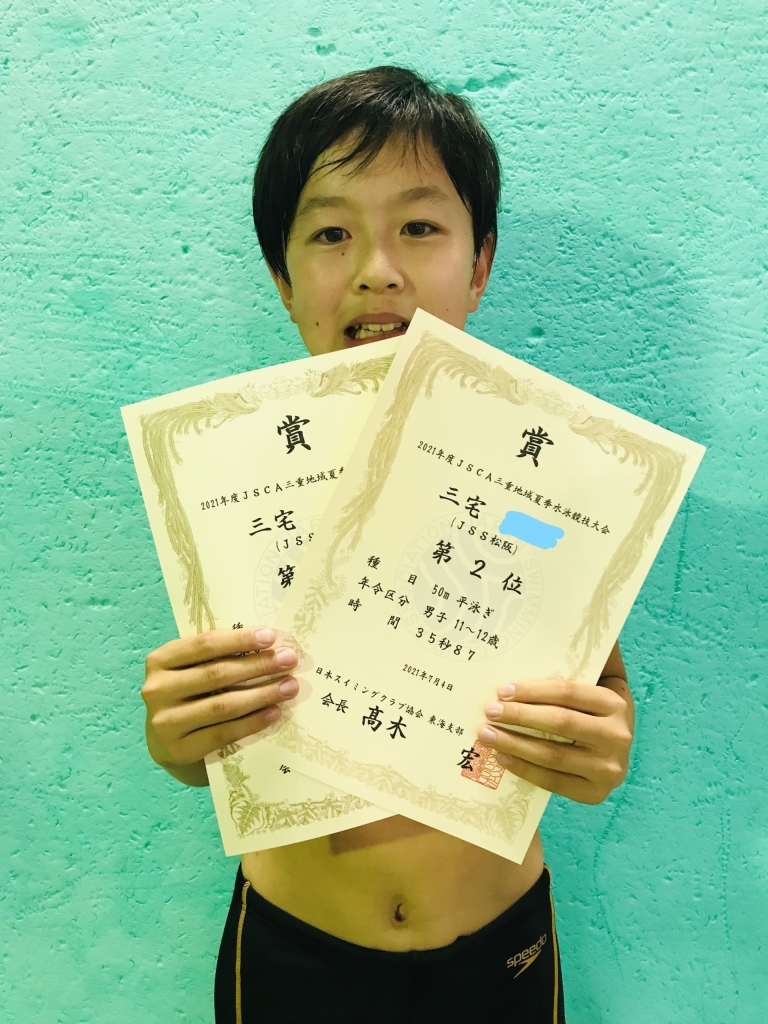 賞
2021年度JSCA三重地域夏季
三宅
(JSS
第
賞
2021年度JSCA三重地域夏季水泳競技大会
三宅
(JSS松阪)
第2位
種目 50m 平泳ぎ
年令区分 男子 11～12歳
時間 35秒87
2021年7月4日
日本スイミングクラブ協会 東海支部
会長 髙木 宏
speedo